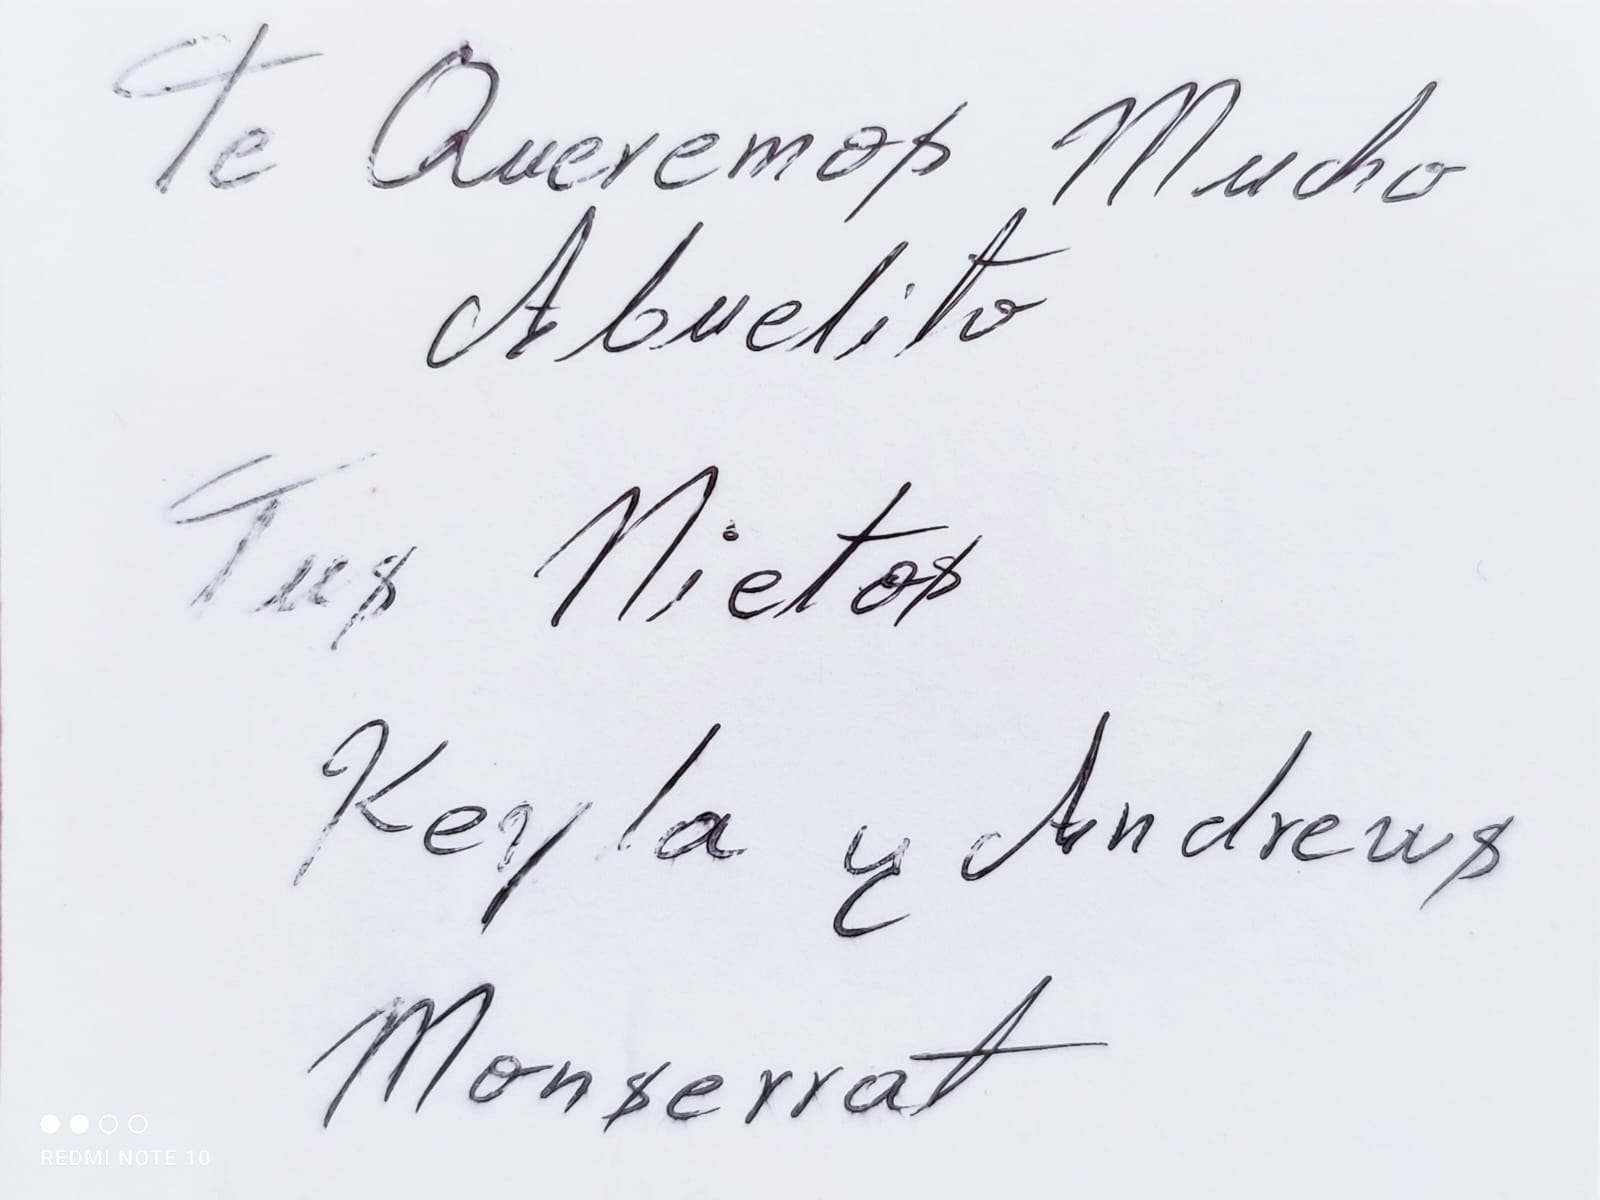 Te Queremos Mucho
Abuelito
Tus Nietos
Keyla y Andrews
Monserrat
REDMI NOTE 10